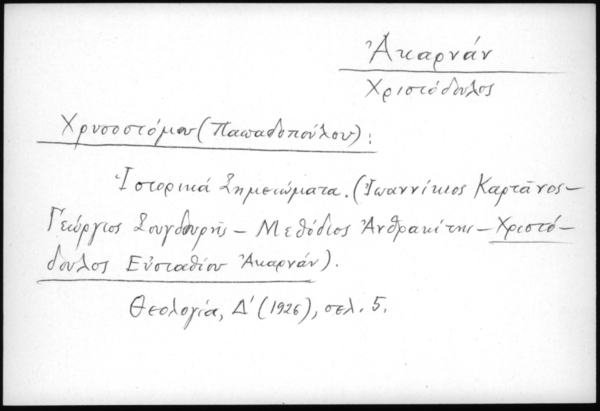 Ἀκαρνάν
Χριστόδουλος
Χρυσοστόμου (Παπαδοπούλου):
Ἱστορικά Σημειώματα. (Ἰωαννίκιος Καρτᾶνος –
Γεώργιος Σουγδουρῆς – Μεθόδιος Ἀνθρακίτης – Χριστό-
δουλος Εὐσταθίου Ἀκαρνάν).
Θεολογία, Δ' (1926), σελ. 5.